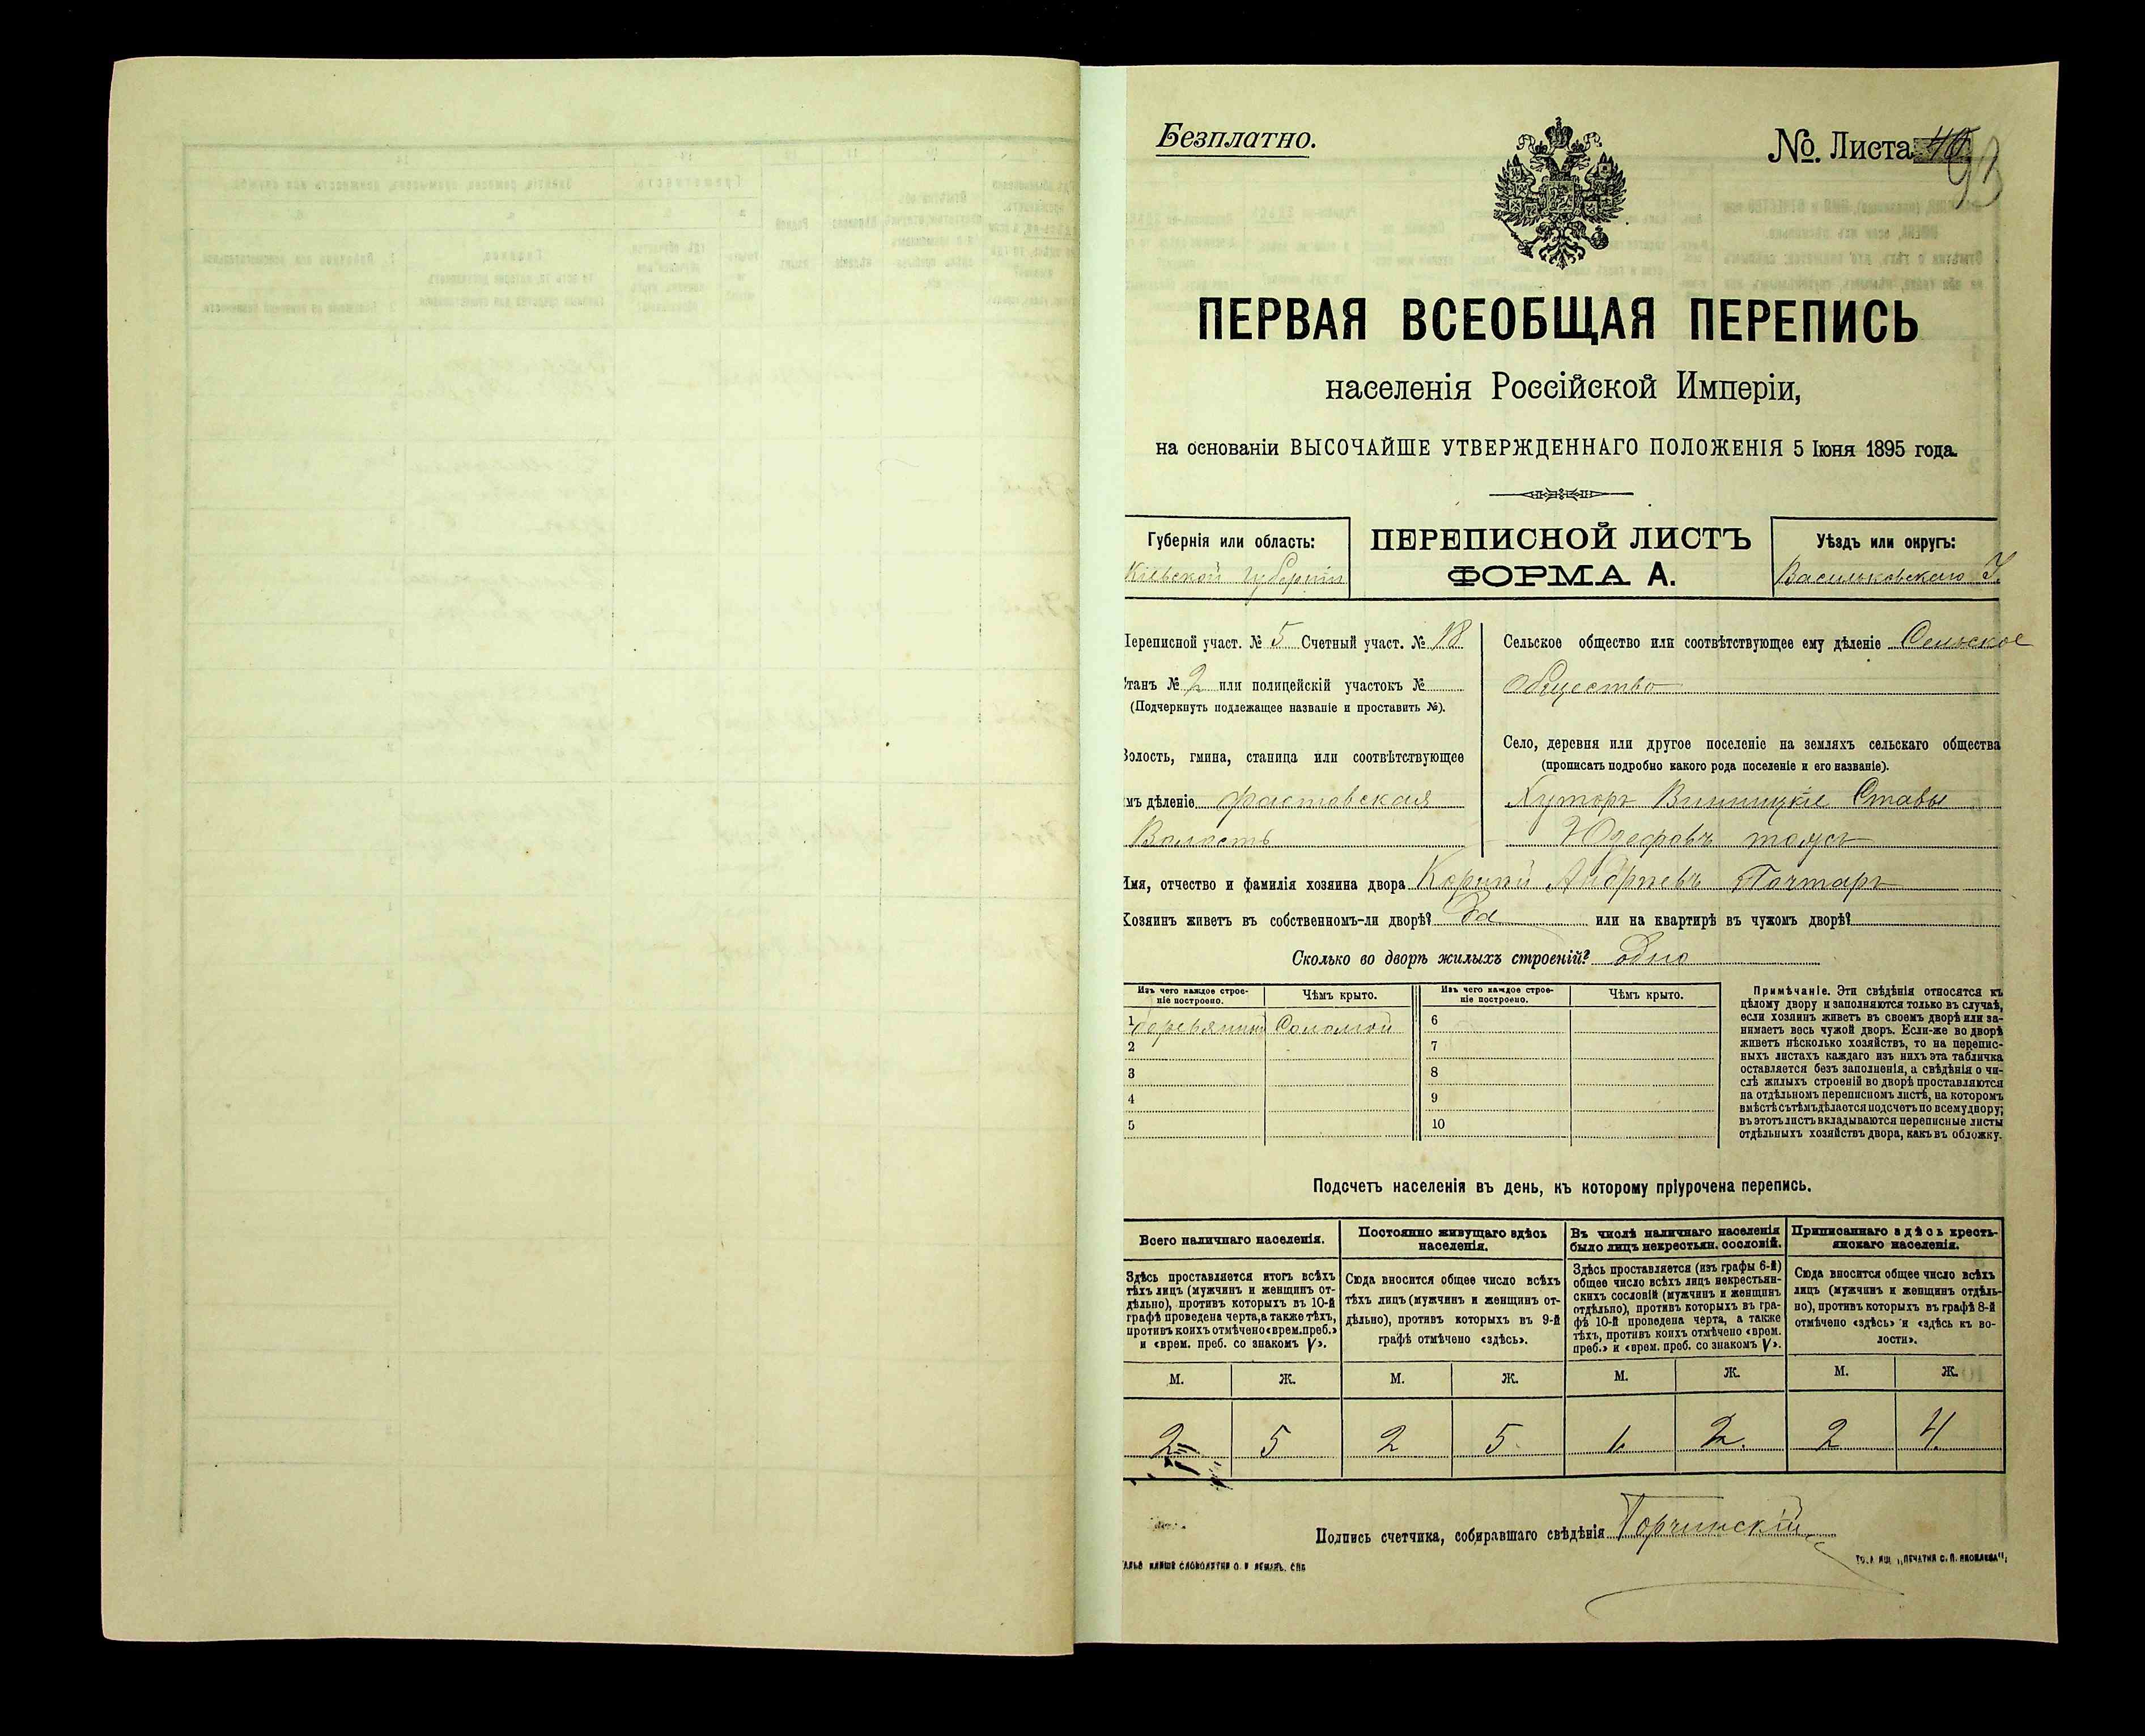 Безплатно.
№. Листа 40
93
ПЕРВАЯ ВСЕОБЩАЯ ПЕРЕПИСЬ
населенія Россійской Имперіи,
на основаніи ВЫСОЧАЙШЕ УТВЕРЖДЕННАГО ПОЛОЖЕНІЯ 5 Іюня 1895 года.
Губернія или область:
Кіевской Губерніи
ПЕРЕПИСНОЙ ЛИСТЪ
ФОРМА А.
Уѣздъ или округъ:
Васильковскаго У.
Переписной участ. № 5 Счетный участ. № 18
Станъ № 2 или полицейскій участокъ №
(Подчеркнуть подлежащее названіе и проставить №).
Волость, гмина, станица или соотвѣтствующее
имъ дѣленіе Фастовская
Волость
Сельское общество или соотвѣтствующее ему дѣленіе Сельское
Общество
Село, деревня или другое поселеніе на земляхъ сельскаго общества
(прописать подробно какого рода поселеніе и его названіе).
Хуторъ Винницкіе Ставы
Имя, отчество и фамилія хозяина двора Андріевъ Почтарь
Хозяинъ живетъ въ собственномъ-ли дворѣ? Да или на квартирѣ въ чужомъ дворѣ?
Сколько во дворѣ жилыхъ строеній? Одно
Изъ чего каждое строе-
ніе построено.
Чѣмъ крыто.
Изъ чего каждое строе-
ніе построено.
Чѣмъ крыто.
1 деревянный Соломой 6
2 7
3 8
4 9
5 10
Примѣчаніе. Эти свѣдѣнія относятся къ
цѣлому двору и заполняются только въ случаѣ,
если хозяинъ живетъ въ своемъ дворѣ или за-
нимаетъ весь чужой дворъ. Если-же во дворѣ
живетъ нѣсколько хозяйствъ, то на перепис-
ныхъ листахъ каждаго изъ нихъ эта табличка
оставляется безъ заполненія, а свѣдѣнія о чи-
слѣ жилыхъ строеній во дворѣ проставляются
на отдѣльномъ переписномъ листѣ, на которомъ
вмѣстѣ съ тѣмъ дѣлается подсчетъ по всему двору;
въ этотъ листъ вкладываются переписные листы
отдѣльныхъ хозяйствъ двора, какъ въ обложку.
Подсчетъ населенія въ день, къ которому пріурочена перепись.
Всего наличнаго населенія.
Здѣсь проставляется итогъ всѣхъ
тѣхъ лицъ (мужчинъ и женщинъ от-
дѣльно), противъ которыхъ въ 10-й
графѣ проведена черта, а также тѣхъ,
противъ коихъ отмѣчено «врем. преб.»
и «врем. преб. со знакомъ V».
Постоянно живущаго здѣсь
населенія.
Сюда вносится общее число всѣхъ
тѣхъ лицъ (мужчинъ и женщинъ от-
дѣльно), противъ которыхъ въ 9-й
графѣ отмѣчено «здѣсь».
Въ числѣ наличнаго населенія
было лицъ некрестьян. сословій.
Здѣсь проставляется (изъ графы 6-й)
общее число всѣхъ лицъ некрестьян-
скихъ сословій (мужчинъ и женщинъ
отдѣльно), противъ которыхъ въ гра-
фѣ 10-й проведена черта, а также
тѣхъ, противъ коихъ отмѣчено «врем.
преб.» и «врем. преб. со знакомъ V».
Приписаннаго здѣсь кресть-
янскаго населенія.
Сюда вносится общее число всѣхъ
лицъ (мужчинъ и женщинъ отдѣль-
но), противъ которыхъ въ графѣ 8-й
отмѣчено «здѣсь» и «здѣсь къ во-
лости».
М. Ж. М. Ж. М. Ж. М. Ж.
2 5 2 5 1 2 2 4
Подпись счетчика, собиравшаго свѣдѣнія Горчинскій